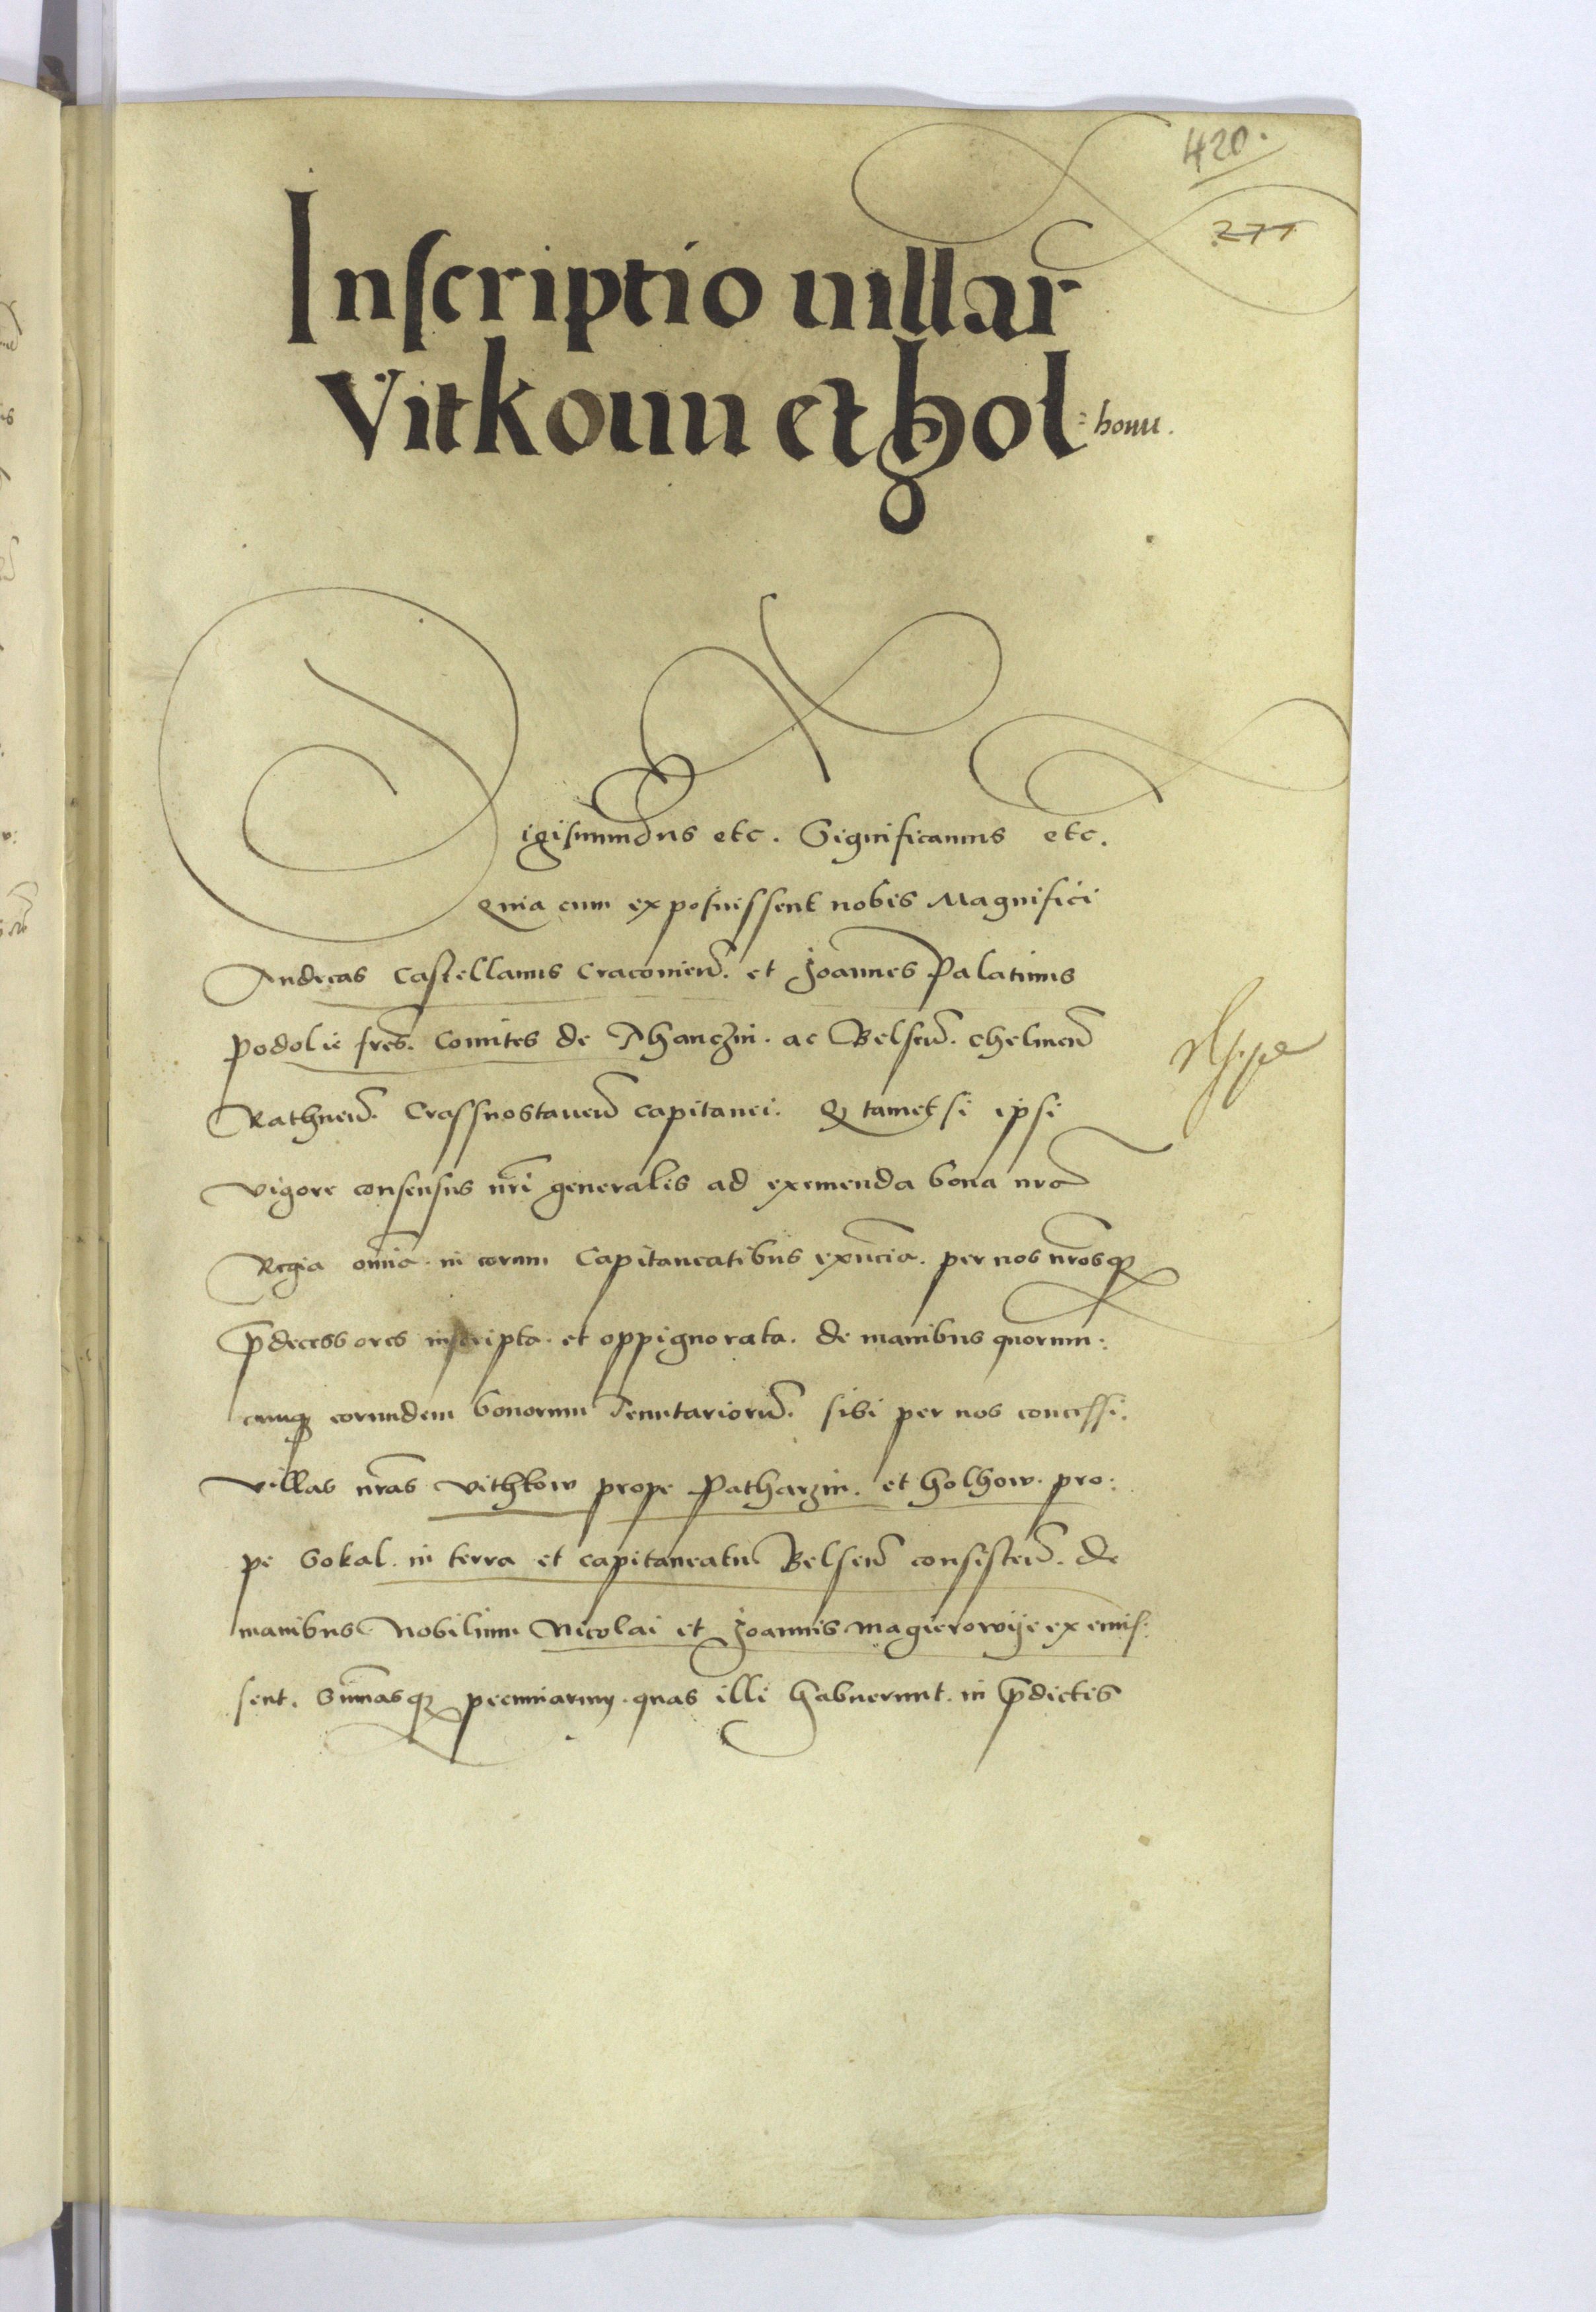 420.
271
Inscriptio uillar
Vitkouu et hol=houu.
igismundus etc. Significamus etc.
Quia cum exposuissent nobis Magnifici
Andreas Castellanus Cracovien̄. et Joannes Palatinus
Podolie frēs. Comites de Thanczin. ac Belsen̄. Chelmen̄
Rathnen̄. Crassnostauen̄ capitanei. Q tametsi ipsi
vigore consensus nr̄i generalis ad eximenda bona nrā
Regia om̄ia. in eorum Capitaneatibus exn̄cia. per nos nr̄osqꝫ
p̄decessores inscripta. et oppignorata. de manibus quorum:
cunqꝫ eorundem bonorum Tenutariorū. sibi per nos concessi.
villas nr̄as Vithkow prope Patharzin. et Holhow. pro:
pe Sokal. in terra et capitaneatu Belsen̄ consisten̄. de
manibus Nobilium Nicolai et Joannis Magierowije exemis:
sent. Sum̄asqꝫ pecuniarum. quas illi habuerunt. in p̄dictis